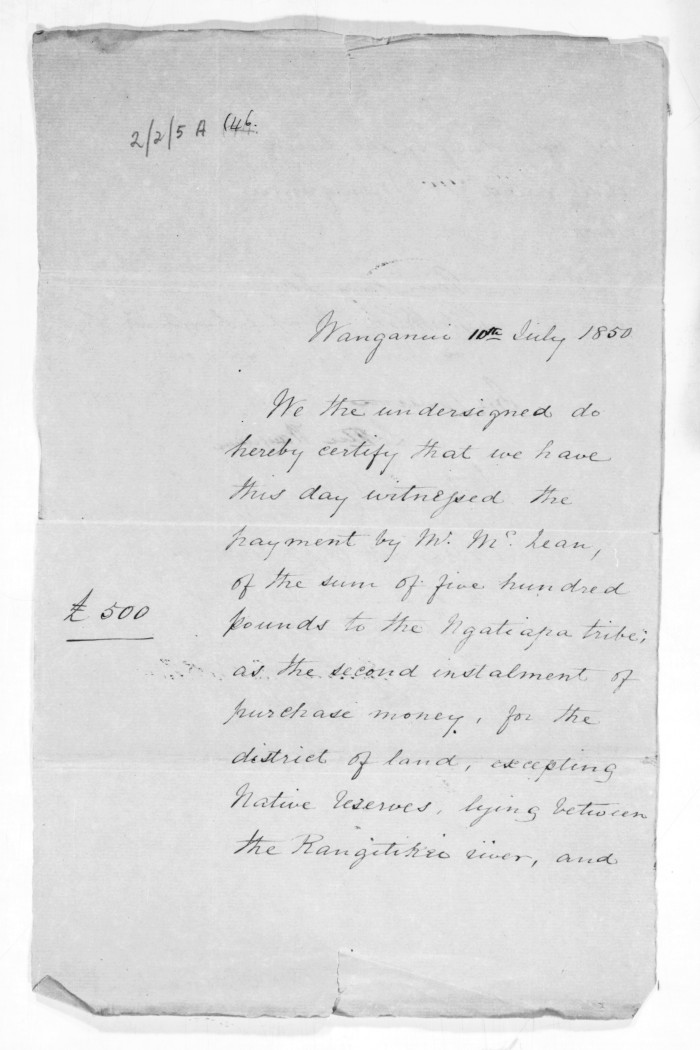 2/2/5 A (46.
Wanganui 10th July 1850
We the undersigned do
hereby certify that we have
this day witnessed the
payment by Mr. Mc. Lean,
of the sum of five hundred
£ 500
pounds to the Ngatiapa tribe;
as the second instalment of
purchase money, for the
district of land, excepting
Native reserves, lying between
the Rangitikei river, and